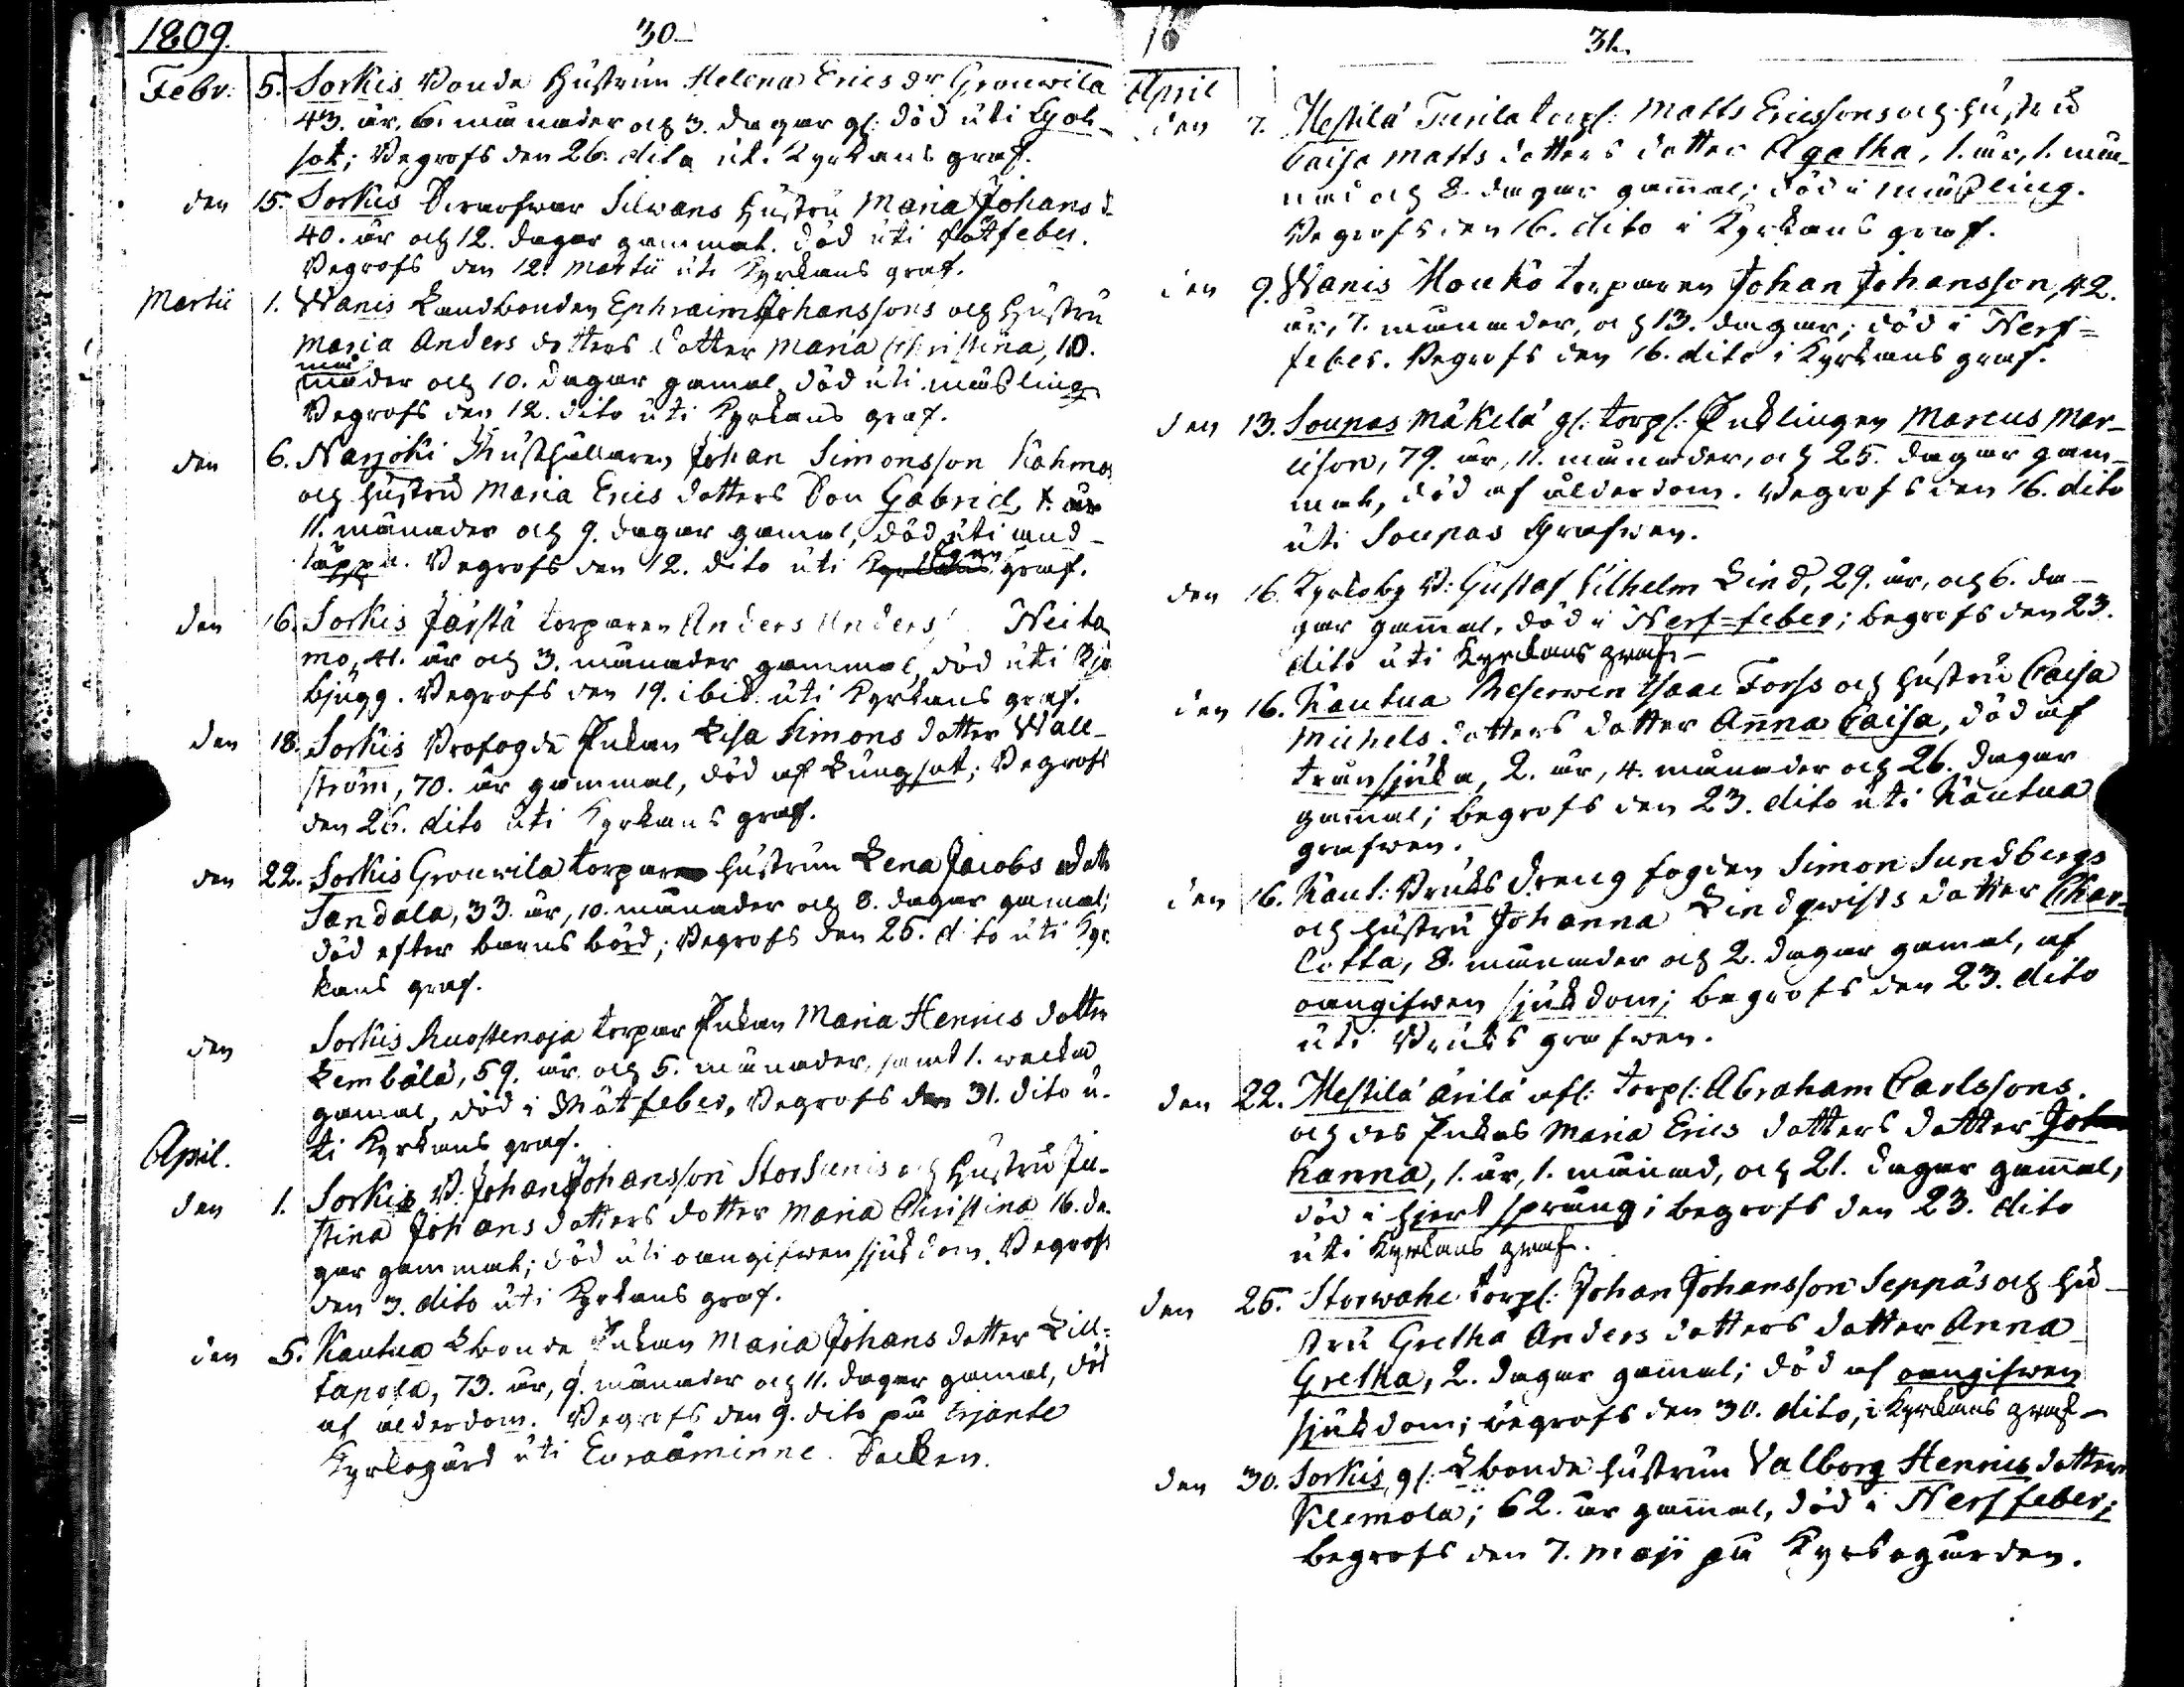 1809.
30.
Febr. 5. Sorkis Bonde Hustrun Helena Erics dr Grouwila
43. år, 6. månader och 3. dagar gl: död uti Lyol-
sot; Begrofs den 26. dito uti Kyrkans graf.
den 15. Sorkis Silwans Hustru Maria Johans d
40. år och 12. dagar gammal. död uti Rötfeber.
Begrofs den 12. Martii uti Kyrkans graf.
Martii 1. Wanis Landbonden Ephraim Johanssons och Hustru
Maria Anders dotters dotter Maria Christina, 10.
må
nader och 10. dagar gamal, död uti mäßling
Begrofs den 12. dito uti Kyrkans graf.
den 6. Narjoki Husthållaren Johan Simonsson Kahma
och Hustru Maria Erics dotters Son Gabriel, 1. år
11. månader och 9. dagar gamal, död uti and-
täppa. Begrofs den 12. dito uti Kyrkans egen graf.
den 16. Sorkis Jaistä torparen Anders Anders Neita
mo, 41. år och 3. månader gammal, död uti
bjugg. Begrofs den 19. ibid. uti Kyrkans graf.
den 18. Sorkis Profogde Enkan Lisa Simons dotter Wall-
ström, 70. år gammal, död af Lungsot; Begrofs
den 26. dito uti Kyrkans graf.
den 22. Sorkis Grouwila torpare Hustrun Lena Jacobs dotte
Sandala, 33. år, 10. månader och 8. dagar gamal;
död efter barnsbörd; Begrofs den 26. dito uti Kyr
kans graf.
den Sorkis Ruostenoja torpar Enkan Maria Henrics dotter
Lembälä, 59. år och 5. månader, samt 1. wecka
gamal, död i Rötfeber, Begrofs den 31. dito u-
ti Kyrkans graf.
April.
den 1. Sorkis B: Johan Johansson Storsunis och Hustru Ju-
stina Johans dotters dotter Maria Christina 16. da
gar gammal; död uti oangifwen sjukdom. Begrofs
den 3. dito uti Kyrkans graf.
den 5. Kautua Lbonde Enkan Maria Johans dotter Lill-
tapola, 73. år, 9. månader och 11. dagar gamal, död
af ålderdom. Begrofs den 9. dito på
Kyrkogård uti Euraåminne Socken.
18
31.
April
den 7. Mestilä Turila torpf: Matts Ericssons och Hustru
Caisa Matts dotters dotter Agatha, 1. år, 1. må-
nad och 8. dagar gammal; död i mäßling.
Begrofs den 16. dito i Kyrkans graf.
den 9. Wanis Mouko torparen Johan Johansson, 42.
år, 7. månader, och 13. dagar; död i Nerf-
feber. Begrofs den 16. dito i Kyrkans graf.
den 13. Soupas Mäkelä gl: torpf: Enklingen Marcus Mar-
cison, 79. år, 11. månader, och 25. dagar gam-
mal, död af ålderdom. Begrofs den 16. dito
uti Soupas Grafwen.
den 16. Kyrkoby B: Gustaf Vilhelm Lind, 29. år, och 6. da-
gar gammal, död i Nerf-feber; begrofs den 23.
dito uti Kyrkans graf-
den 16. Kautua Reserwen Isaac Forss och Hustru Caisa
Michels dotters dotter Anna Caisa, död af
transjuka, 2. år, 4. månader och 26. dagar
gammal; begrofs den 23. dito uti Kautua
grafwen.
den 16. Kaut: Bruks Dreng fogden Simon Sundbergs
och Hustru Johanna Lindqwists dotter Char-
lotta, 8. månader och 2. dagar gamal, af
oangifwen sjukdom; begrofs den 23. dito
uti Bruks grafwen.
den 22. Mestilä Ärilä afl: torpf: Abraham Carlssons
och des Enkas Maria Erics dotters dotter Jo
hanna, 1. år, 1. månad, och 21. dagar gammal,
död i hjertsprång; begrofs den 23. dito
uti Kyrkans graf.
den 26. Storwahe torpf: Johan Johansson Seppäs och Hu-
stru Gretha Anders dotters dotter Anna
Gretha, 2. dagar gamal; död af oangifwen
sjukdom; begrofs den 30. dito, i Kyrkans graf-
den 30. Sorkis gl: Lbonde Hustrun Valborg Henrics dotter
Klemola; 62. år gammal, död i Nerffeber;
begrofs den 7. Maji på Kyrkogården.